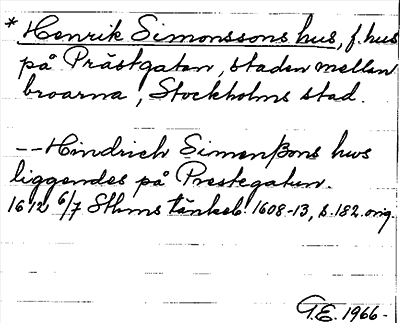 * Henrik Simonssons hus, f. hus
på Prästgatan, staden mellan
broarna, Stockholms stad.
-- Hindrich Simenßons hws
liggendes på Prestegatun.
1612 6/7 Sthms tänkeb. 1608-13, s. 182. orig.
G.E. 1966-